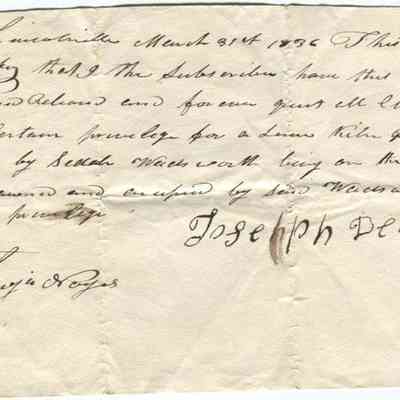 Lincolnville March 31st 1836 This
that I the Subscriber have this
and Released and forever quit all C
Certain privilege for a Lime Kiln
by Sedate Wadsworth lying on the
owned and occupied by said Wadsw
privilege
Joseph De
Noyes